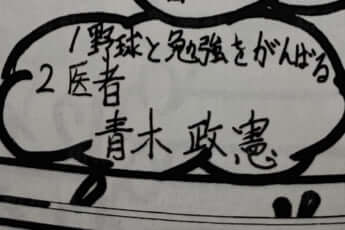 1 野球と勉強をがんばる
2 医者
青木 政憲